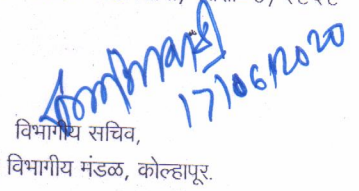 17/06/2020
विभागीय सचिव,
विभागीय मंडळ, कोल्हापूर.